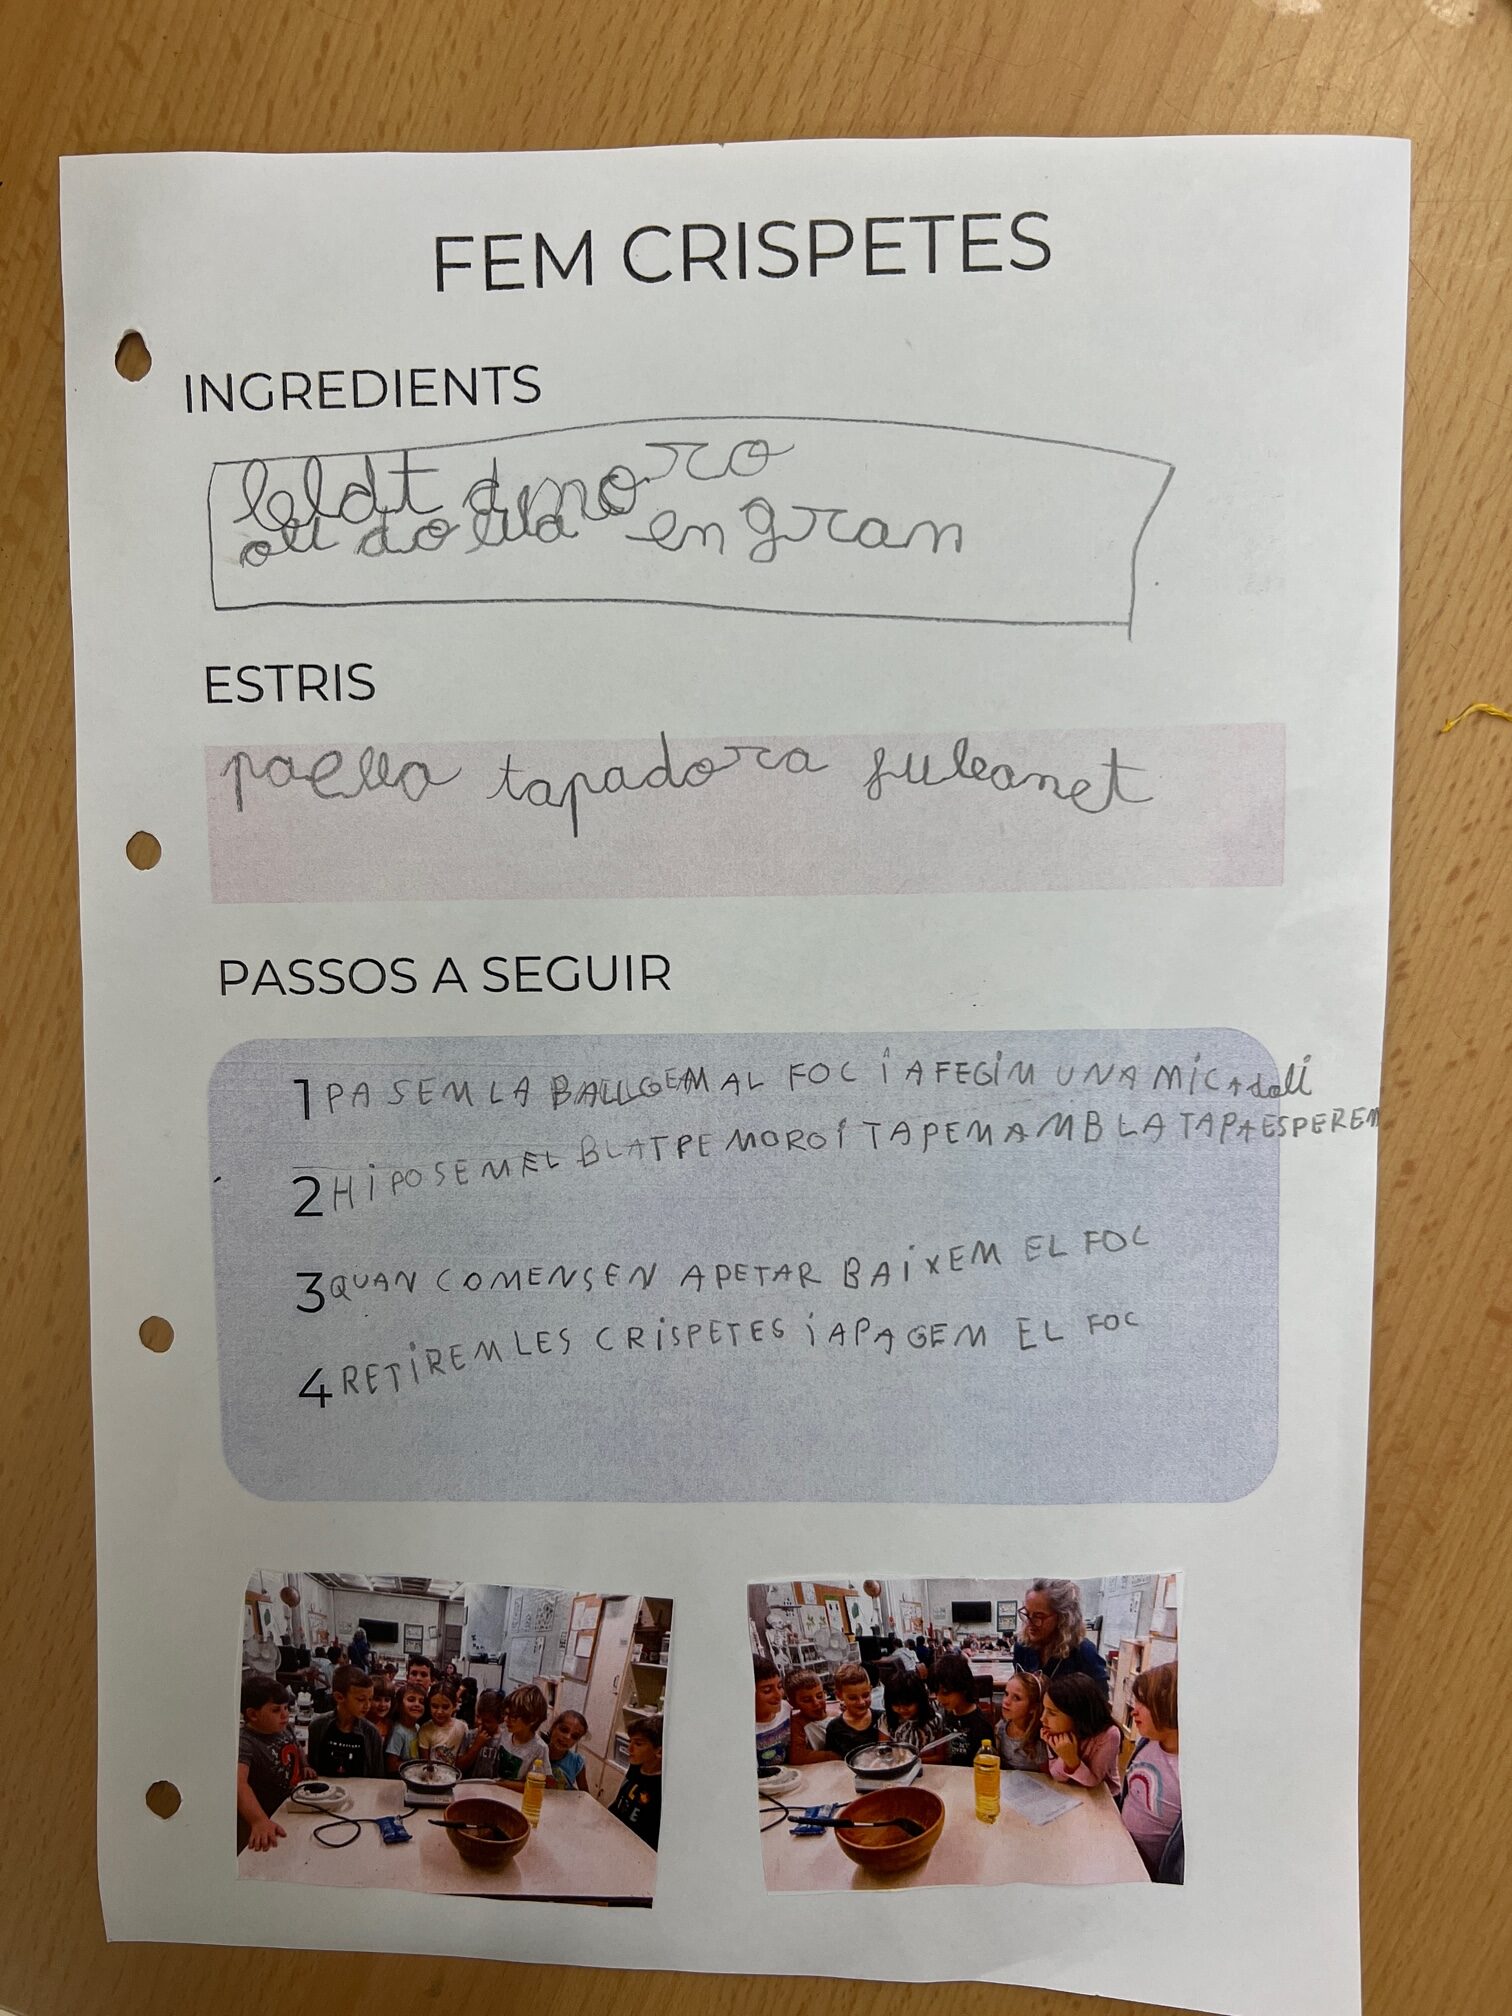 FEM CRISPETES
INGREDIENTS
moro
oli en gran
ESTRIS
paella tapadora
PASSOS A SEGUIR
1 PASEM LA AL FOC i AFEGIM UNA MICA doli
2 Hi POSEM EL BLAT PE MORO i TAPEM AMB LA TAPA ESPEREM
3 QUAN COMENSEN APETAR BAiXEM EL FOC
4 RETiREM LES CRiSPETES i APAGEM EL FOC